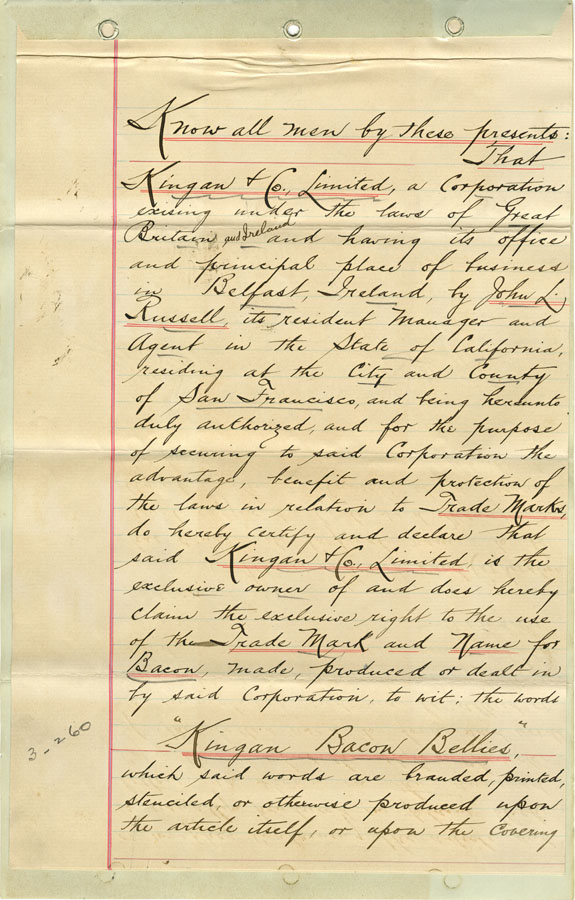 Know all men by these presents:
That
Kingan & Co., Limited, a Corporation
exising under the laws of Great
Britain and Ireland and having its office
and principal place of business
in Belfast, Ireland, by John L.
Russell, its resident Manager and
Agent in the State of California,
residing at the City and County
of San Francisco, and being hereunto
duly authorized, and for the purpose
of securing to said Corporation the
advantage, benefit and protection of
the laws in relation to Trade Marks,
do hereby certify and declare That
said Kingan & Co., Limited, is the
exclusive owner of and does hereby
claim the exclusive right to the use
of the Trade Mark and Name for
Bacon, made, produced or dealt in
by said Corporation, to wit; the words
"Kingan Bacon Bellies,"
which said words are branded, printed,
stenciled, or otherwise produced upon
the article itself, or upon the covering
3-260